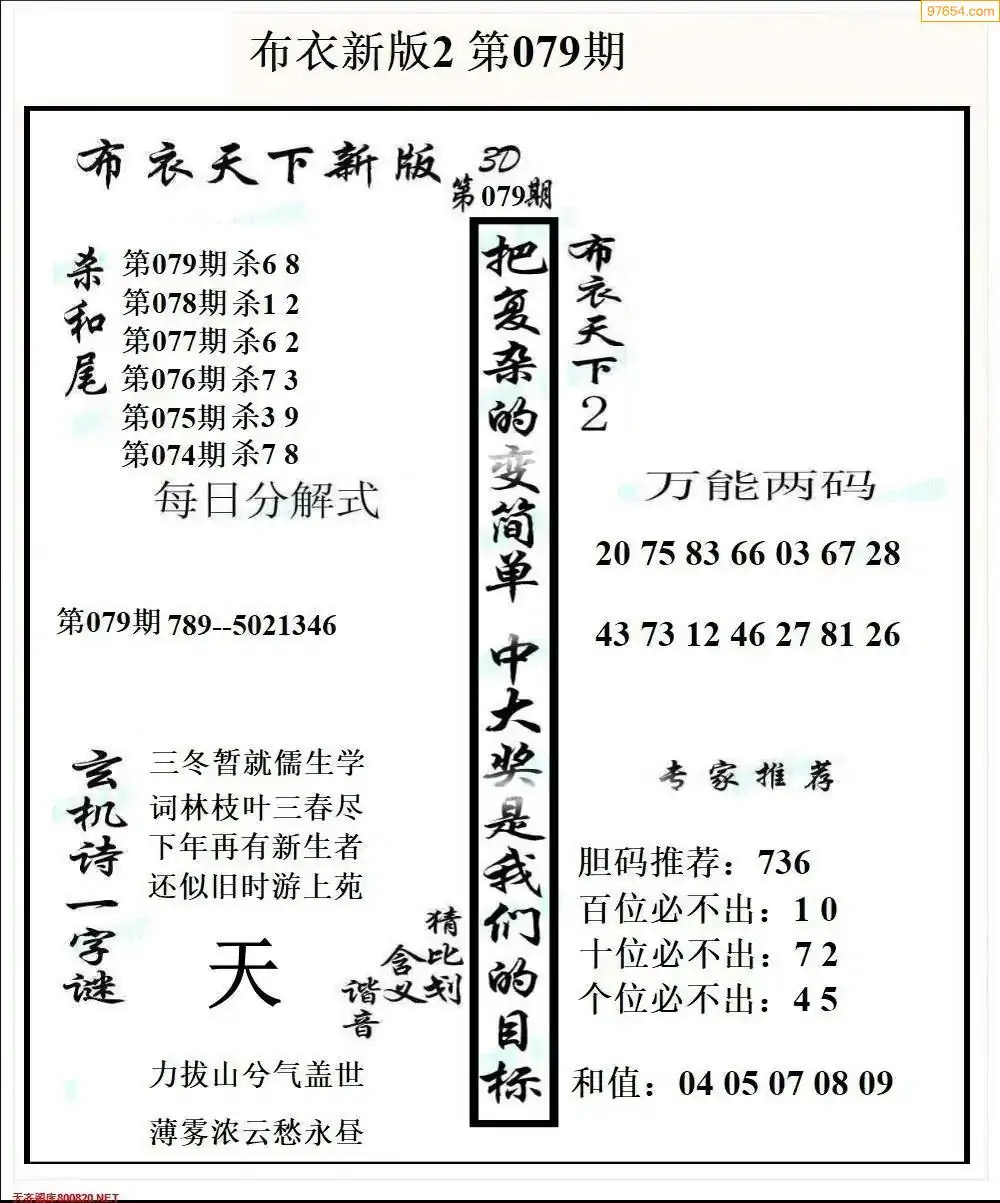 97654.com
布衣新版2 第079期
布衣天下新版
3D
第079期
杀和尾
第079期 杀6 8
第078期 杀1 2
第077期 杀6 2
第076期 杀7 3
第075期 杀3 9
第074期 杀7 8
每日分解式
第079期 789--5021346
玄机诗一字谜
三冬暂就儒生学
词林枝叶三春尽
下年再有新生者
还似旧时游上苑
天
猜比划
含义
谐音
力拔山兮气盖世
薄雾浓云愁永昼
把复杂的变简单 中大奖是我们的目标
布衣天下2
万能两码
20 75 83 66 03 67 28
43 73 12 46 27 81 26
专家推荐
胆码推荐：736
百位必不出：1 0
十位必不出：7 2
个位必不出：4 5
和值：04 05 07 08 09
天齐图库800820.NET